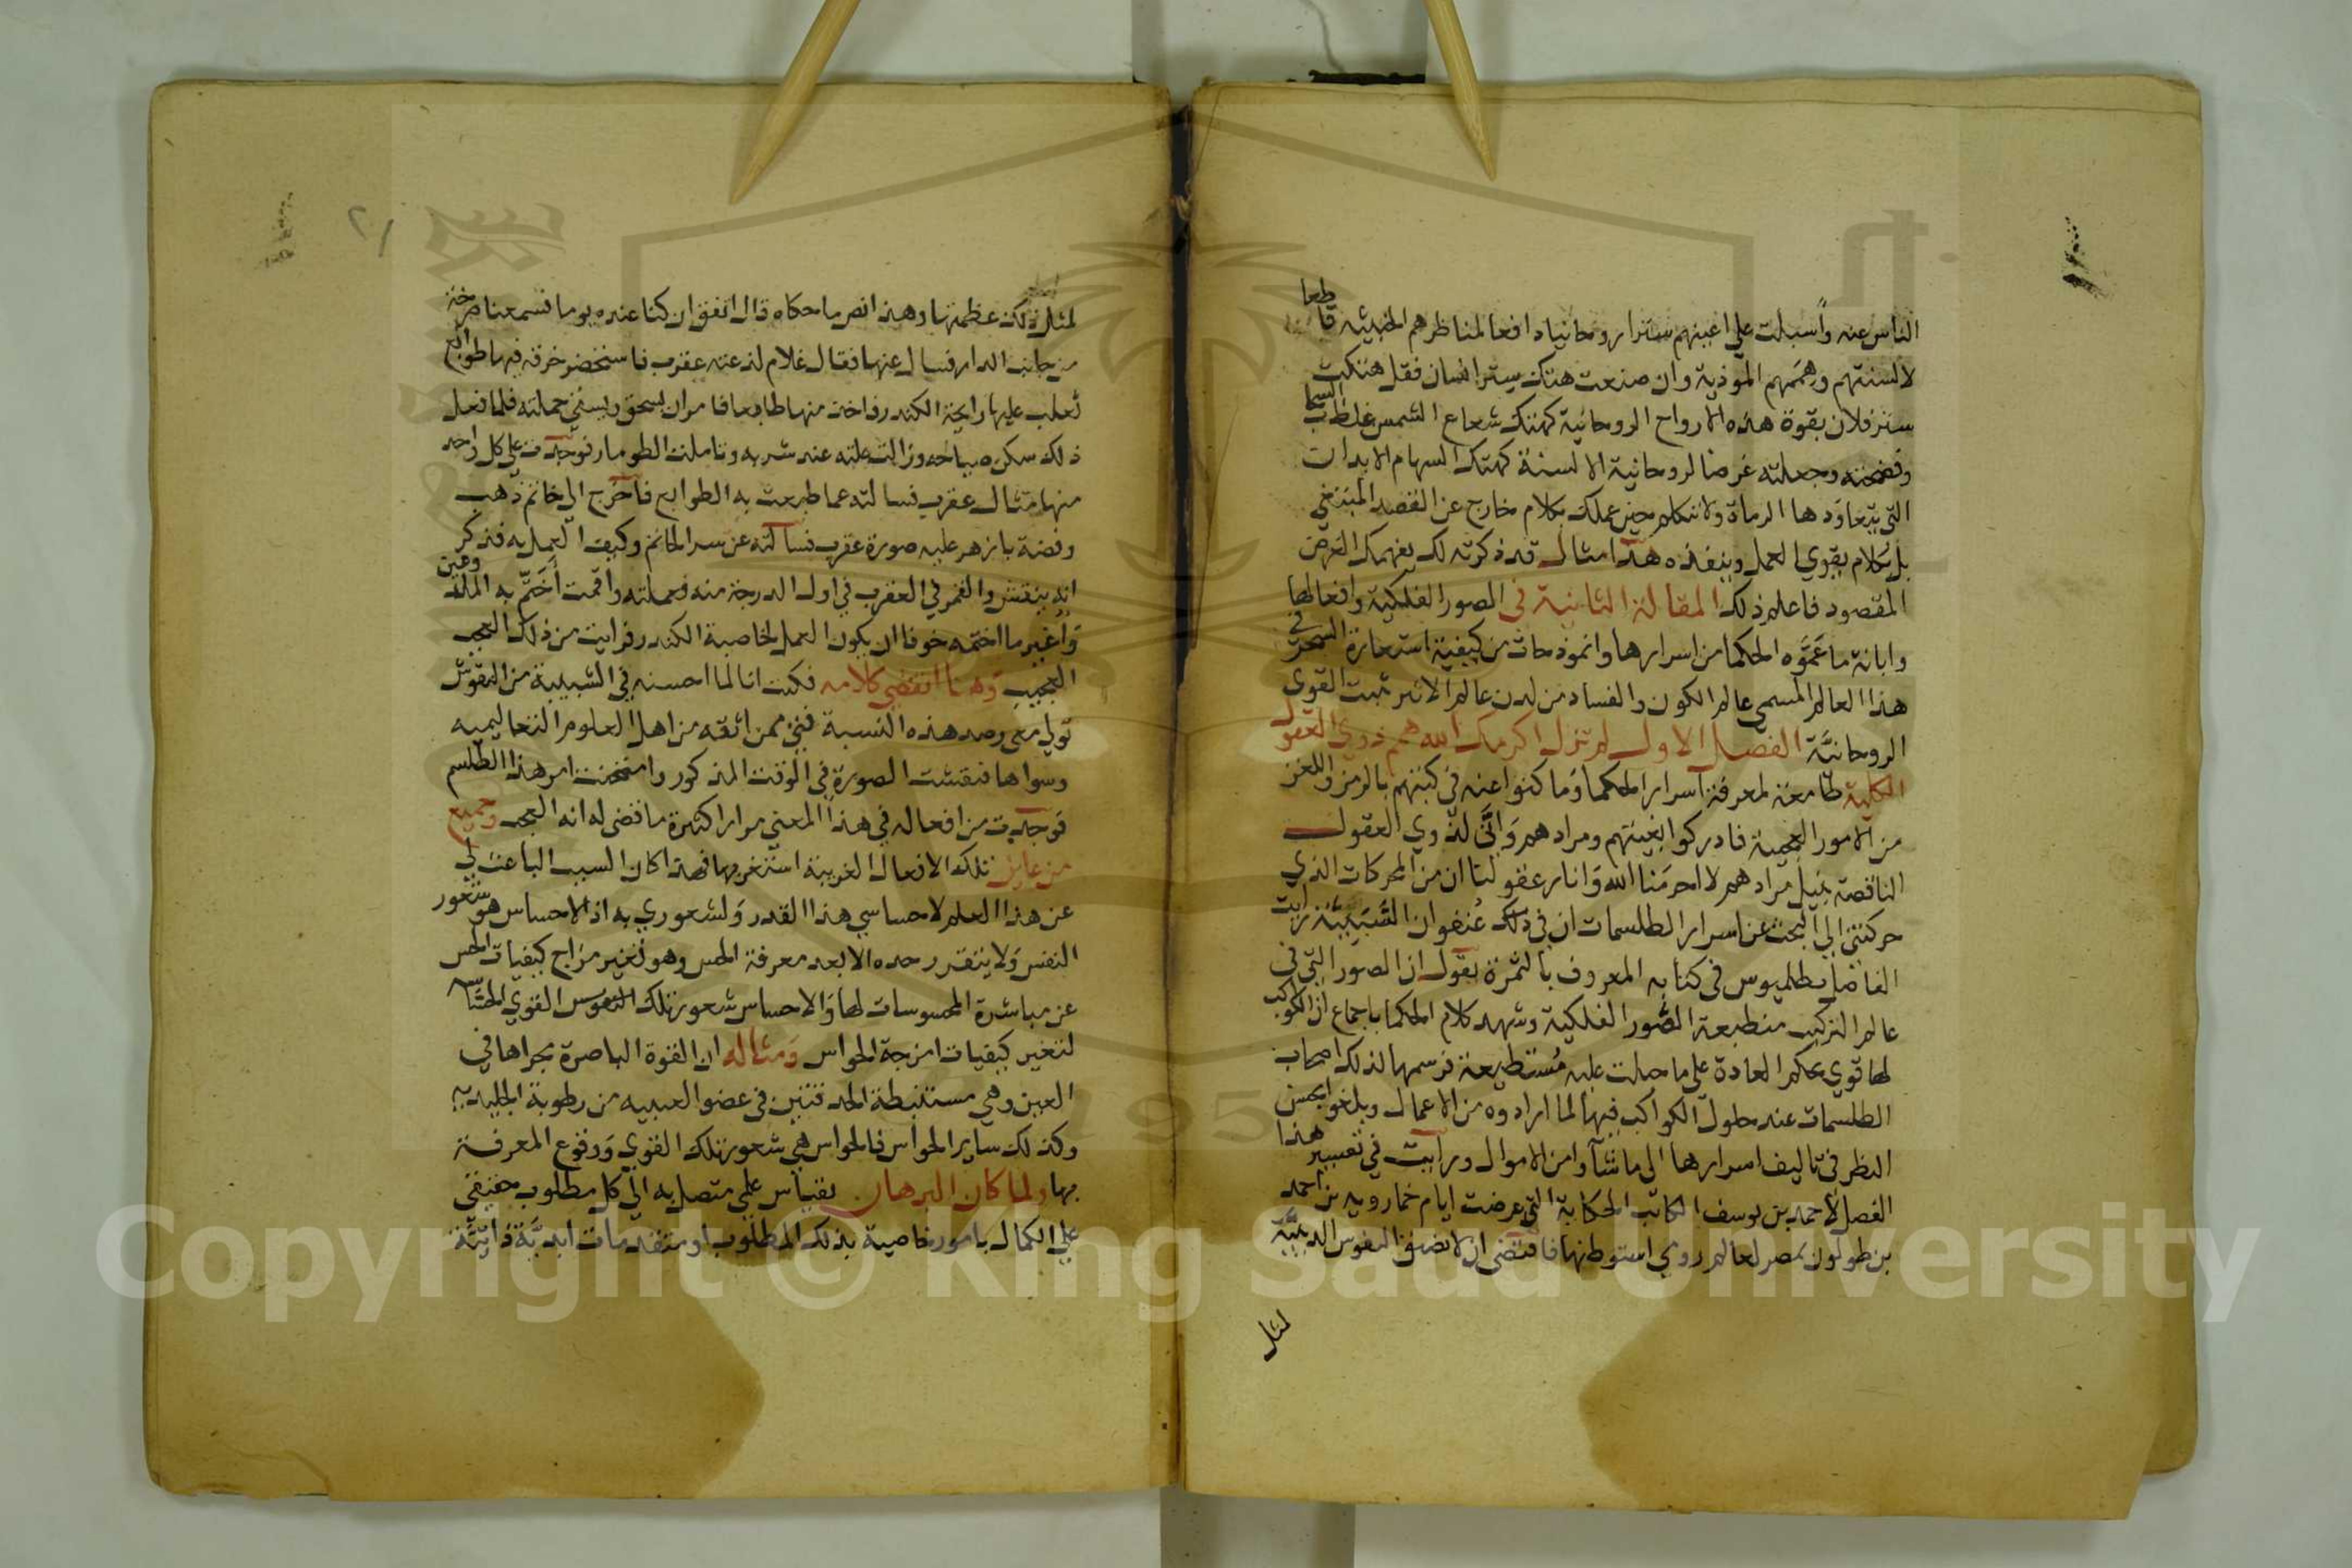 الناس عنه وأسبلت علي اعينهم سترا روحانيا دافعا لمناظرهم الخبيثه قاطعا
لالسنتهم وهممهم الموذية وان صنعت هتك ستر انسان فقل هتكت
ستر فلان بقوة هذه الارواح الروحانية كهتك شعاع الشمس غلظ السحاب
وفضحته وجعلته غرضا لروحانية الالسنة كهتك السهام الابدان
التي يتعاودها الرماة ولا تتكلم حين عملك بكلام خارج عن القصد المبتغي
بل بكلام يقوي العمل وينفذه هذا مثال قد ذكرته لك يفهمك الغرض
المقصود فاعلم ذلك المقالة الثانية في الصور الفلكية وافعالها
وابانة ما عموه الحكما من اسرارها وانموذجات من كيفية استعارة السحر في
هذا العالم المسمي عالم الكون والفساد من لدن عالم الاثير مثبت القوي
الروحانية الفصل الاول لم تزل اكرمك الله همم ذوي العقول
الكلية طامعة لمعرفة اسرار الحكما وما كنوا عنه في كتبهم بالرمز واللغز
من الامور العجيبة فادركوا بغيتهم ومرادهم واني لذوي العقول
الناقصة بنيل مرادهم لا احرمنا الله وانار عقولنا ان من المحركات الذي
حركتني الي البحث عن اسرار الطلسمات ان في ذلك عنفوان الشبيبة رايت
الفاضل بطلميوس في كتابه المعروف بالثمرة يقول ان الصور التي في
عالم التركيب منطبعة الصور الفلكية وشهد كلام الحكما باجماع ان الكواكب
لها قوي بحكم العادة علي ما جبلت عليه فرسمها لذلك اصحاب
الطلسمات عند حلول الكواكب فيها لما ارادوه من الاعمال وبلغوا بحسن
النظر في تاليف اسرارها الي ما شآوا من الاموال ورأيت في تفسير هذا
الفصل لاحمد بن يوسف الكاتب الحكاية التي عرضت ايام خمارويه بن احمد
بن طولون بمصر لعالم رومي استوطنها فاقتضي ان لا تضيق النفوس
لمثل
٢١
لمثل ذلك عظمتها وهذا نص ما حكاه قال اتفق ان كنا عنده يوما فسمعنا صرخة
من جانب الدار فسال عنها فقال غلام لدغته عقرب فاستحضر خرقة فيها طوابع
تغلب عليها رايحة الكندر فاخذ منها طابعا فامر ان يسحق ويسقي جملته فلما فعل
ذلك سكن صياحه وزالت علته عند شربه وتاملت الطومار فوجدت علي كل واحد
منها مثال عقرب فسالته عما طبعت به الطوابع فاخرج الي خاتم ذهب
وفصه بازهر عليه صورة عقرب فسالته عن سر الخاتم وكيف العمل به فذكر
انه ينقش والقمر في العقرب في اول الدرجة منه فعملته واقمت أختم به
وأغير ما اختمه خوفا ان يكون العمل لخاصية الكندر فرايت من ذلك العجب
العجيب وهنا انقضي كلامه فكنت انا لما احسنه في الشبيبة من النقوش
تولي معي رصد هذه النسبة فتي ممن اثقه من اهل العلوم التعاليميه
وسواها فنقشت الصورة في الوقت المذكور وامتحنت امر هذا الطلسم
فوجدت من افعاله في هذا المعني مرارا كثيرة ما قضي له انه العجب وجميع
من عاين تلك الافعال الغريبة استغربها فهذا كان السبب الباعث لي
عن هذا العلم لاحساسي هذا القدر ولشعوري به اذ الاحساس هو شعور
النفس ولا يتقرر حده الا بعد معرفة الحس وهو تغير مزاج كيفيات الحس
عن مباشرة المحسوسات لها والاحساس شعور تلك النفوس القوي
لتغير كيفيات امزجة الحواس ومثاله ان القوة الباصرة مجراها في
العين وهي مستنبطة الحدقتين في عضو من رطوبة الجليديه
وكذلك ساير الحواس فالحواس هي شعور تلك القوي ووقوع المعرفة
بها ولما كان البرهان بقياس علي متصل به الي كل مطلوب حقيقي
علي الكمال بامور خاصية بذلك المطلوب او متقدمات ابدية ذاتية
Copyright © King Saud University